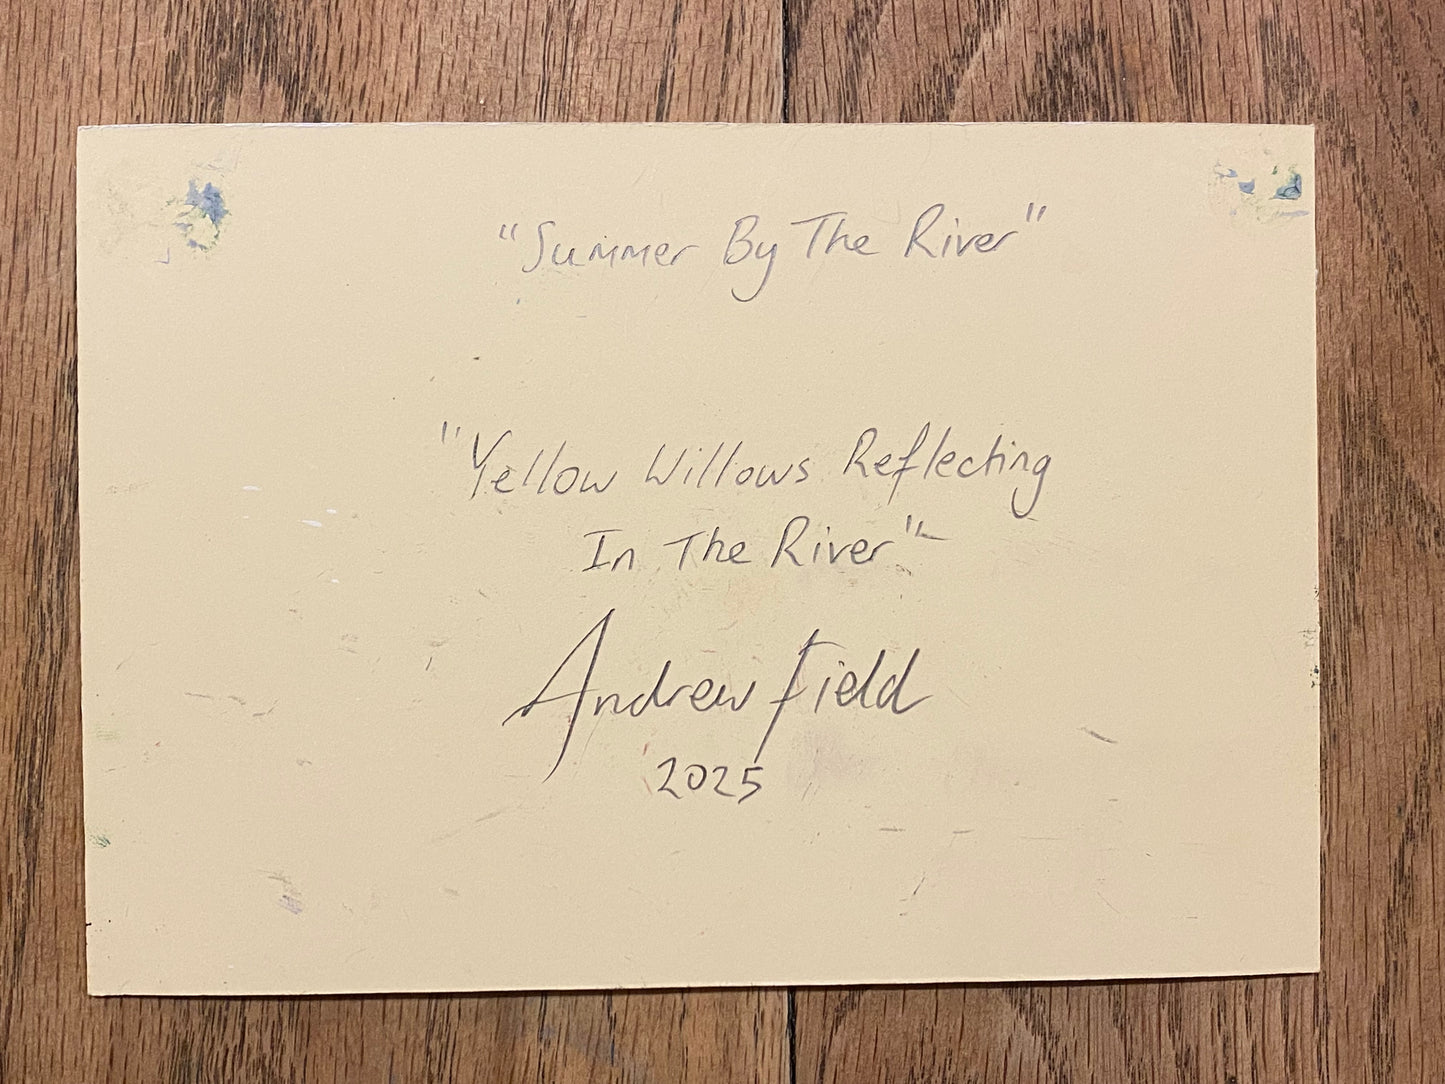 "Summer By The River"
"Yellow Willows Reflecting
In The River"
Andrew Field
2025